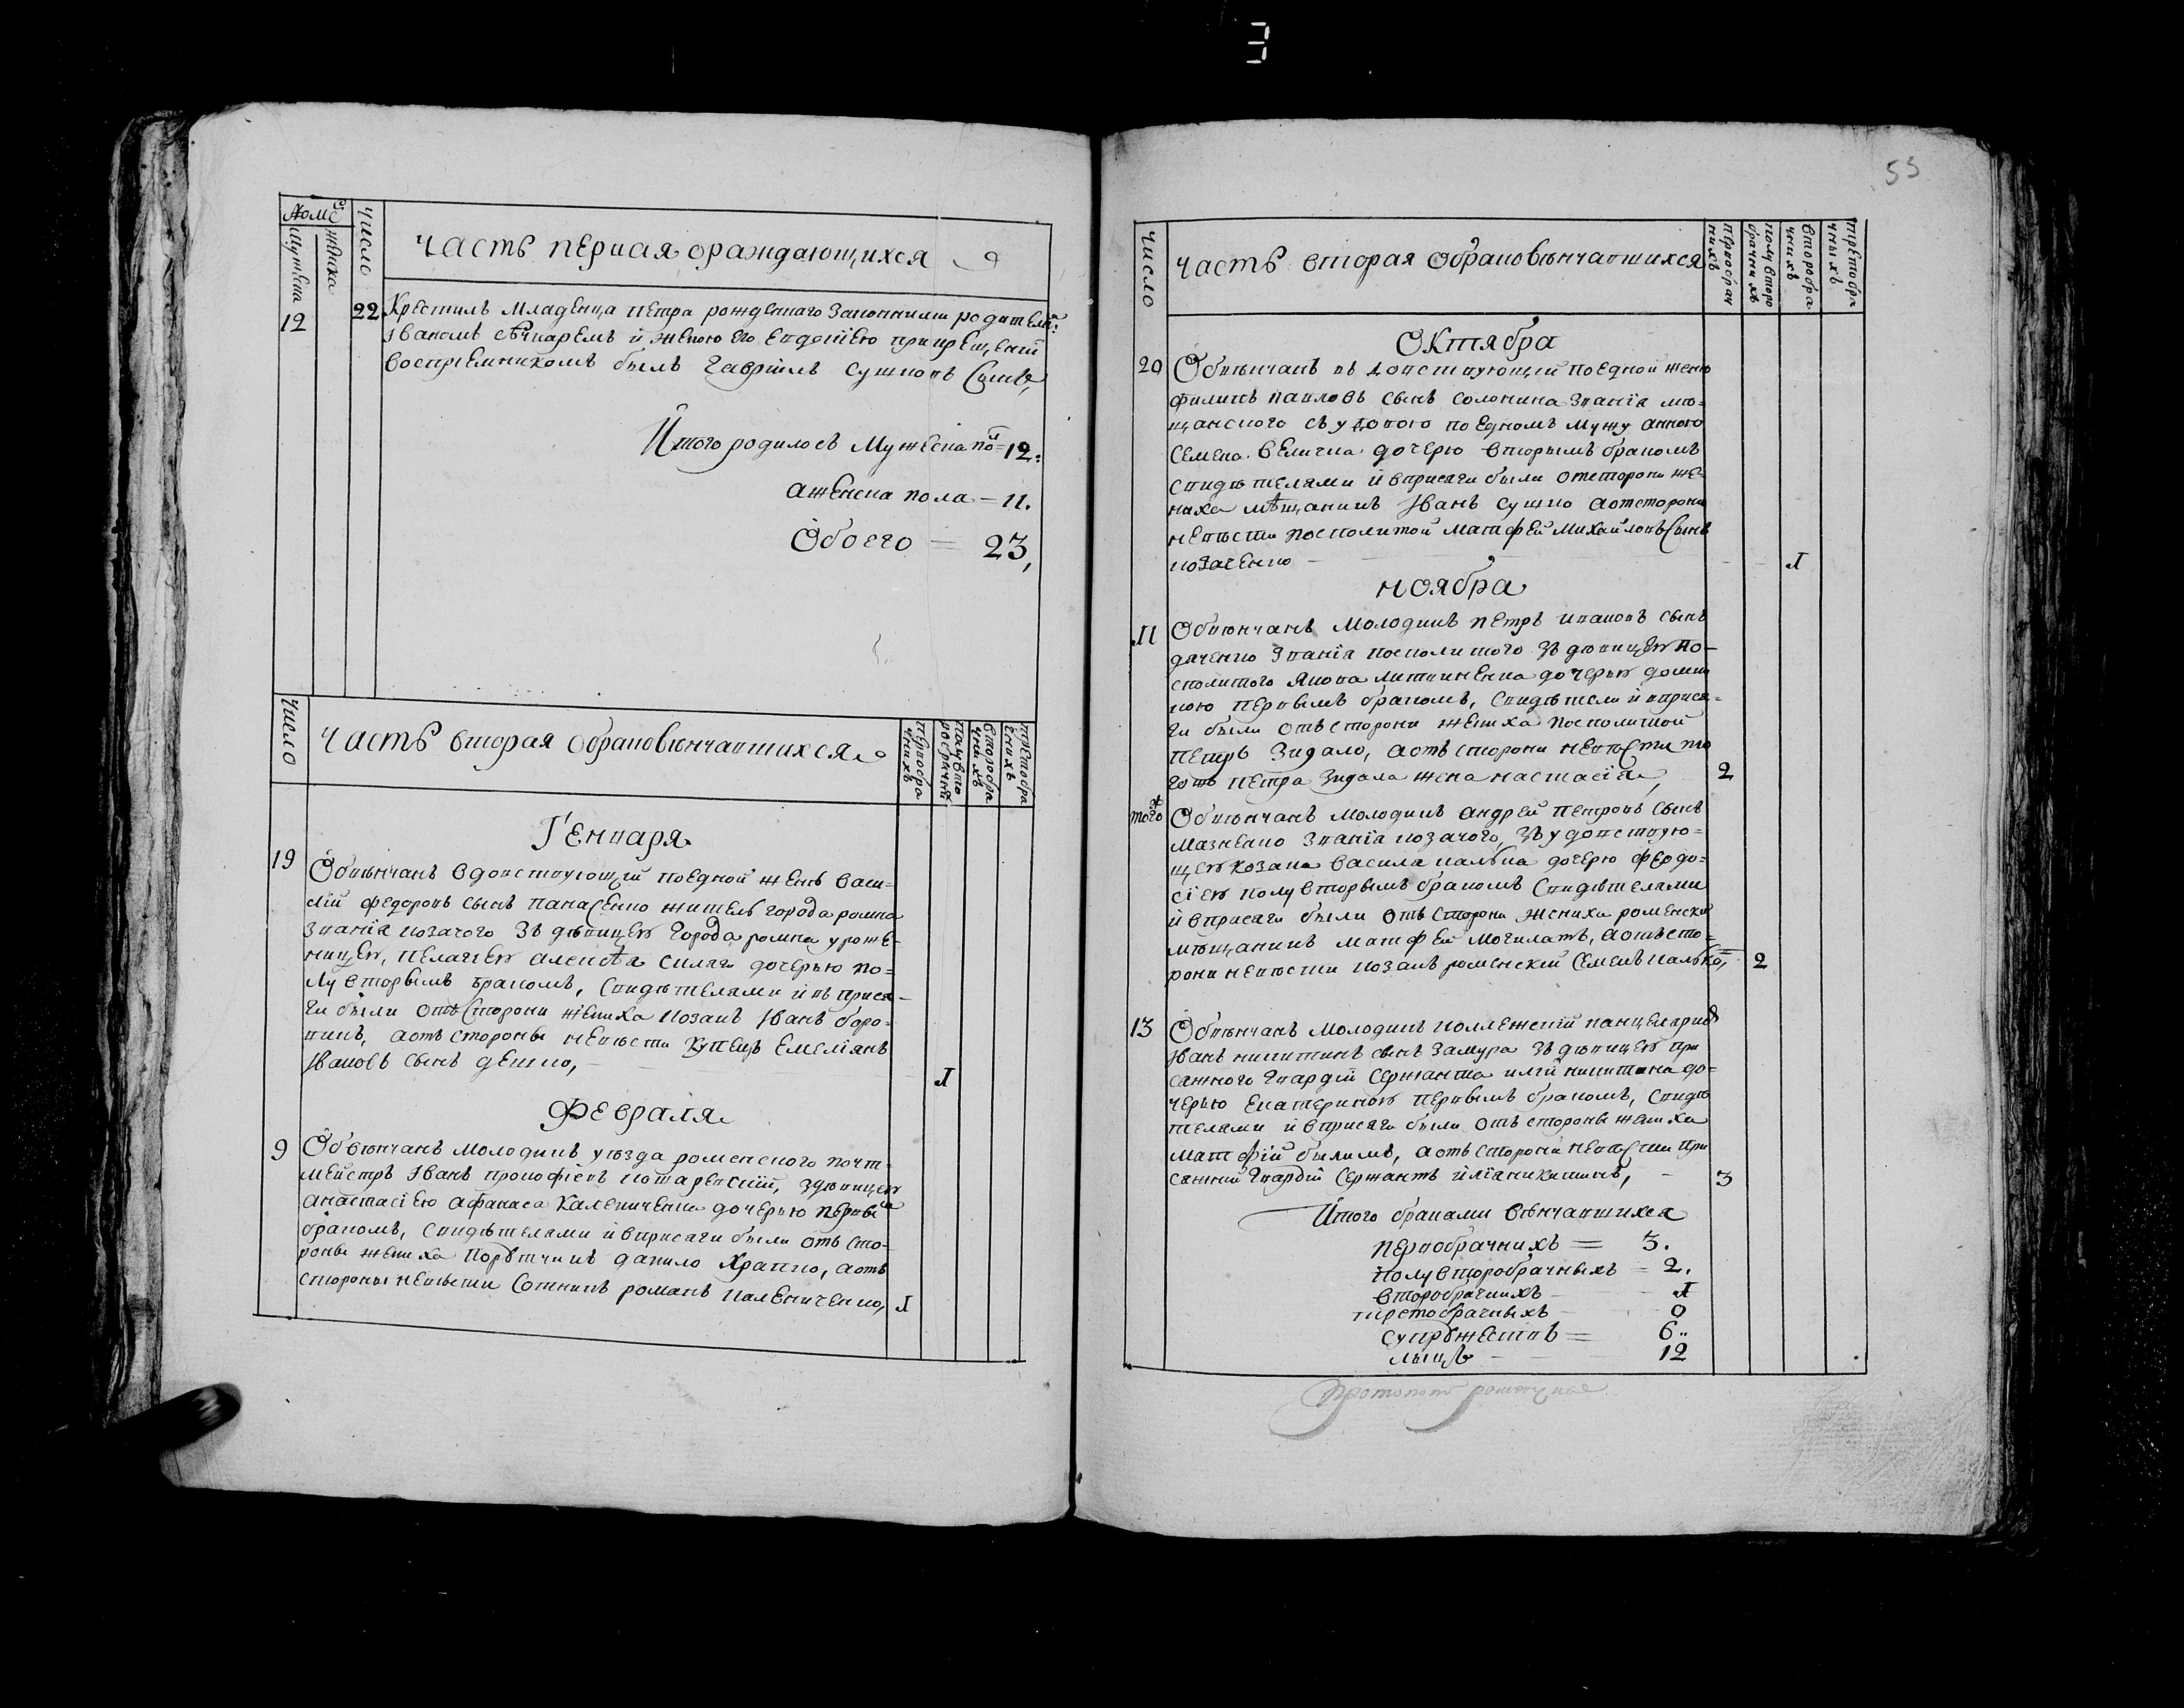 3
№мъ
мужеска
женска
число
часть первая ораждающихся
12
22 Крестилъ младенца Петра рожденнаго законними родители:
Іваномъ сѣчкаремъ и женою его Евдокіею прикрещеніи
воспріемникомъ былъ Гавріилъ Сушковъ Синъ,
Итого родилось мужеска по 12.
а женска пола – 11.
Обоего = 23,
число
часть вторая обраковѣнчавшихся
первобрачнихъ
полувторобрачнихъ
второбрачнихъ
третобрачнихъ
Генваря
19
Обвѣнчанъ вдовствующій поедной женѣ васи-
лій федоровъ сынъ панасенко житель города ромна
званія козачого зъ дѣвицею города ромна уроже-
ницею, пелагіею дочерью по-
лувторымъ бракомъ, свидѣтелями и въ прися-
ги были отъ сторони жениха козакъ Іванъ боро-
, а отъ стороны невѣсти купецъ емеліянъ
Івановъ сынъ 
1
Февраля
9 Обвѣнчанъ молодикъ уѣзда роменского почт-
мейстръ Іванъ прокофіевъ котаревскій, здѣвицею
анастасіею афанаса калениченка дочерью первы
бракомъ, свидѣтелями и вприсяги были отъ сто-
роны жениха порутчикъ данило храпко, а отъ
стороны невѣсти сотникъ романъ калениченко, 1
55
число
часть вторая обраковѣнчавшихся
первобрачнихъ
полувторобрачнихъ
второбрачнихъ
третобрачныхъ
Октября
20 Обвѣнчанъ въдовствующій поедной женѣ
филипъ павловъ сынъ солонина званія мѣ-
щанского съ удовою поедномъ мужу анною
семена величка дочерю вторымъ бракомъ
свидѣтелями и вприсяги были отсторони же-
ниха мѣщанинъ Іванъ сушко а отсторони
невѣсти посполитой матфей михайловъ сынъ
козаченко 1
ноября
11 Обвѣнчанъ молодикъ петръ ивановъ сынъ
дяченко званія посполитого зъ дѣвицею по-
сполитого якова литвиненка дочерью домни-
кою первымъ бракомъ, свидѣтели и вприся-
ги были отъ сторони жениха посполитой
петръ зидало, а отъ сторони невѣсти то
готъ петра зидала жена настасія, 2
того
Обвѣнчанъ молодикъ андрей петровъ сынъ
мазненко званія козачого, зъ удовствую-
щею козака василя калька дочерю феодо-
сіею полувторымъ бракомъ свидѣтелями
и вприсяги были отъ сторони жениха роменскій
мѣщанинъ матфей могилатъ, а отъ сто-
рони невѣсти козакъ роменскій семенъ калько, 2
13 Обвѣнчанъ молодикъ коллежскій канцеляристъ
Іванъ никитинъ сынъ замура зъ дѣвицею при
сяжного гвардіи сержанта иліи никитина до-
черью екатериною первымъ бракомъ, свидѣ
телями и вприсяги были отъ стороны жениха
матфій былимъ, а отъ сторони невѣсти при
сяжній гвардіи сержантъ илія никитинъ, – 3
Итого браками вѣнчавшихся
первобрачнихъ = 3.
полувторобрачныхъ = 2.
второбрачнихъ – 1
третобрачныхъ – 0
супружествъ = 6..
лицъ – 12
Протопопъ